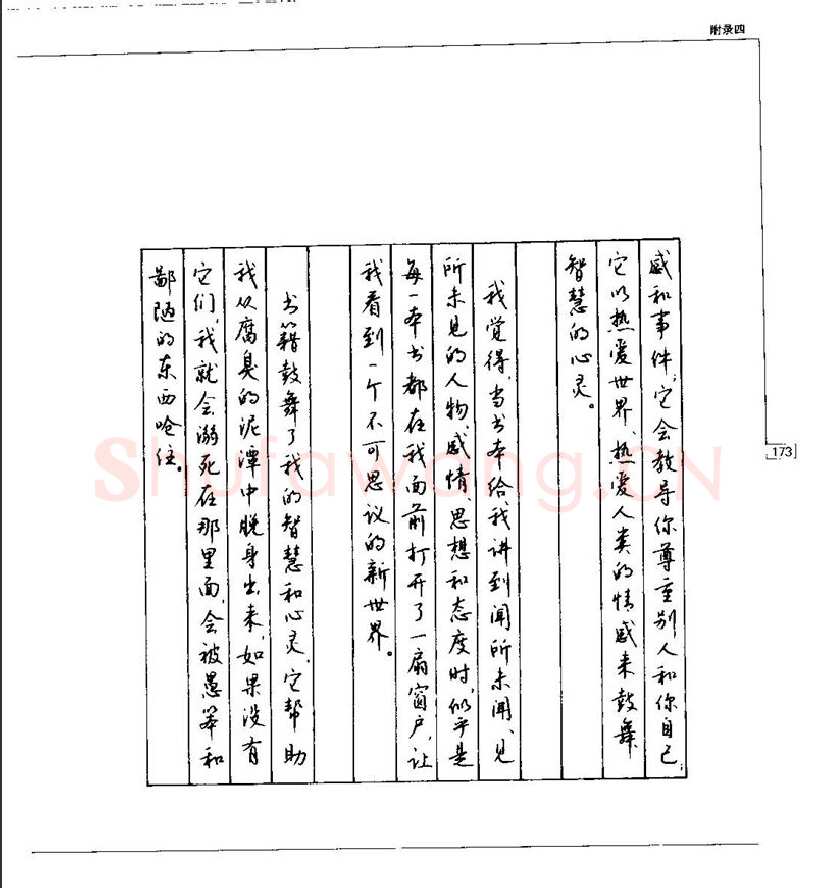 附录四
感和事件,它会教导你尊重别人和你自己;
它以热爱世界、热爱人类的情感来鼓舞
智慧的心灵。
我觉得,当书本给我讲到闻所未闻、见
所未见的人物、感情、思想和态度时,似乎是
每一本书都在我面前打开了一扇窗户,让
我看到一个不可思议的新世界。
书籍鼓舞了我的智慧和心灵,它帮助
我从腐臭的泥潭中脱身出来,如果没有
它们,我就会溺死在那里面,会被愚笨和
鄙陋的东西呛住。
173
Shufawang.CN